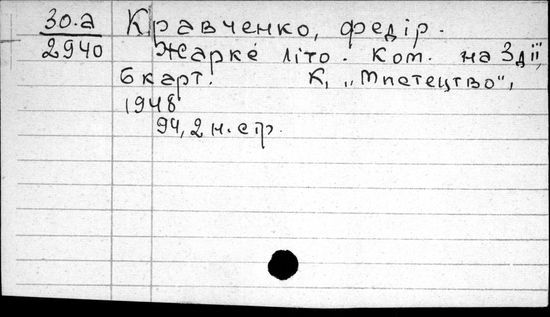 30.а Кравченко, Федір.
2940 Жарке літо. Ком. на 3 дії,
6 карт. К, „Мистецтво",
1948
94, 2 н. стр.